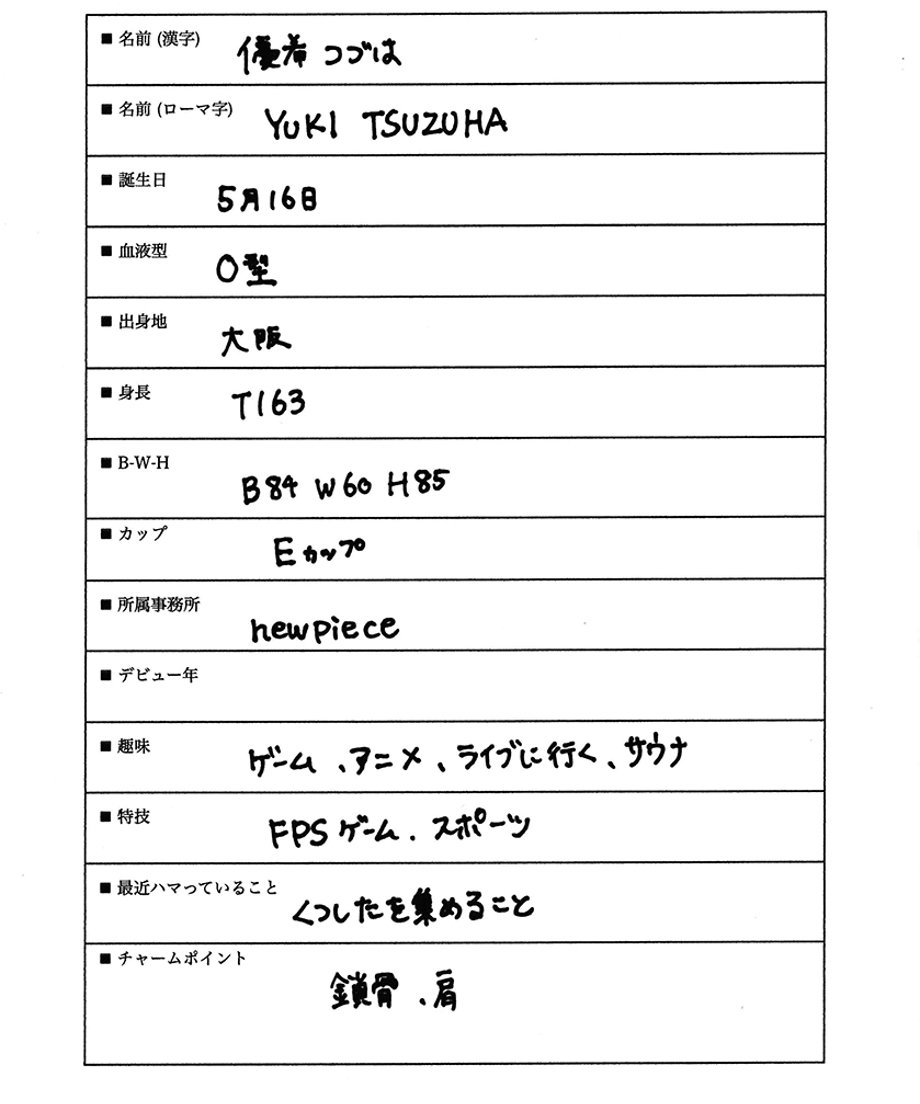 ■ 名前 (漢字) 優希 つづは
■ 名前 (ローマ字) YUKI TSUZUHA
■ 誕生日 5月16日
■ 血液型 O型
■ 出身地 大阪
■ 身長 T163
■ B-W-H B84 W60 H85
■ カップ Eカップ
■ 所属事務所 newpiece
■ デビュー年
■ 趣味 ゲーム、アニメ、ライブに行く、サウナ
■ 特技 FPSゲーム、スポーツ
■ 最近ハマっていること くつしたを集めること
■ チャームポイント 鎖骨、肩